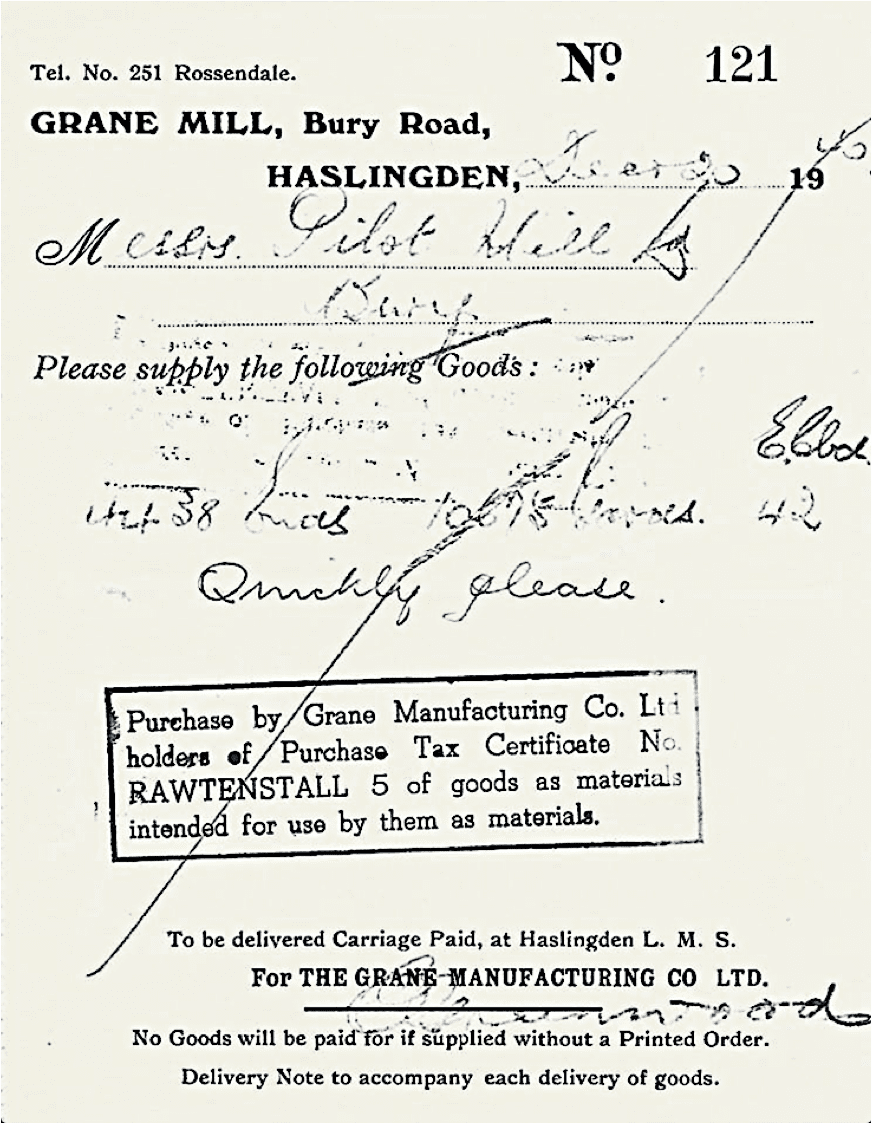 Tel. No. 251 Rossendale. Nº. 121
GRANE MILL, Bury Road,
HASLINGDEN, Dec 20 1940
Messrs. Pilot Mill
Bury
Please supply the following Goods:
38 10675 42
Quickly please.
Purchase by Grane Manufacturing Co. Ltd
holders of Purchase Tax Certificate No.
RAWTENSTALL 5 of goods as materials
intended for use by them as materials.
To be delivered Carriage Paid, at Haslingden L. M. S.
For THE GRANE MANUFACTURING CO LTD.
Greenwood
No Goods will be paid for if supplied without a Printed Order.
Delivery Note to accompany each delivery of goods.